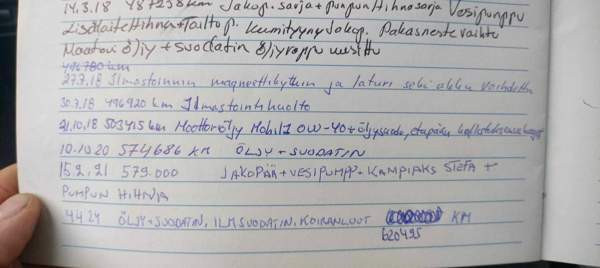 14.3.18 487258 km Jakop. sarja + pumpun hihnasarja Vesipumppu
Lisälaitehihna + Taittop. kumityyny Jakop. Pakasneste vaihto
Moottori öljy + suodatin öljyroppu uusittu
496780 km
27.7.18 Ilmastoinnin magneettikytkin ja laturi sekä akku vaihdettu
30.7.18 496920 km Ilmastointihuolto
21.10.18 503415 km Moottoriöljy Mobil1 0W-40 + öljysuoda,
10.10.20 574686 KM ÖLJY + SUODATIN
15.2.21 579.000 JAKOPÄÄ + VESIPUMPP + KAMPIAKS STEFA +
PUMPUN HIHNA
4.4.24 ÖLJY + SUODATIN, ILMSUODATIN, KOIRANLUUT KM
620495